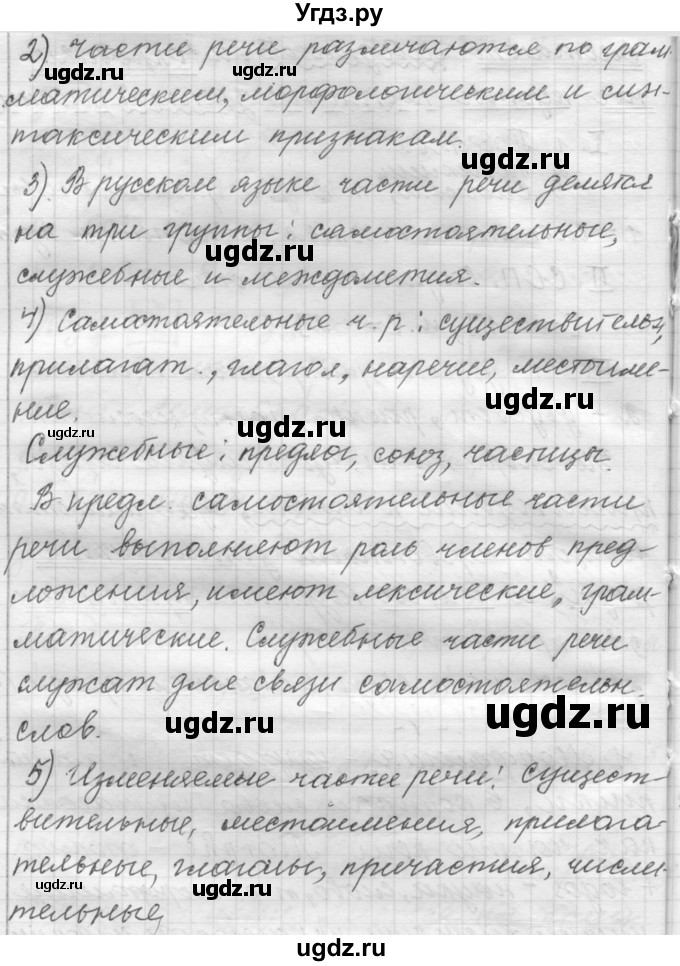 Угдз.ру
2) Части речи различаются по грам-
матическим, морфологическим и син-
таксическим признакам.
3) В русском языке части речи делятся
на три группы: самостоятельные,
служебные и междометия.
4) Самостоятельные ч.р.: существительн,
прилагат., глагол, наречие, местоиме-
ние.
Служебные: предлог, союз, частицы.
В предл. самостоятельные части
речи выполняют роль членов пред-
ложения, имеют лексические, грам-
матические. Служебные части речи
служат для связи самостоятельн.
слов.
5) Изменяемые части речи: сущест-
вительные, местоимения, прилага-
тельные, глаголы, причастия, числи-
тельные,
ugdz.ru
ugdz.ru
ugdz.ru
ugdz.ru
ugdz.ru
ugdz.ru
ugdz.ru
ugdz.ru
ugdz.ru
ugdz.ru
ugdz.ru
ugdz.ru
ugdz.ru